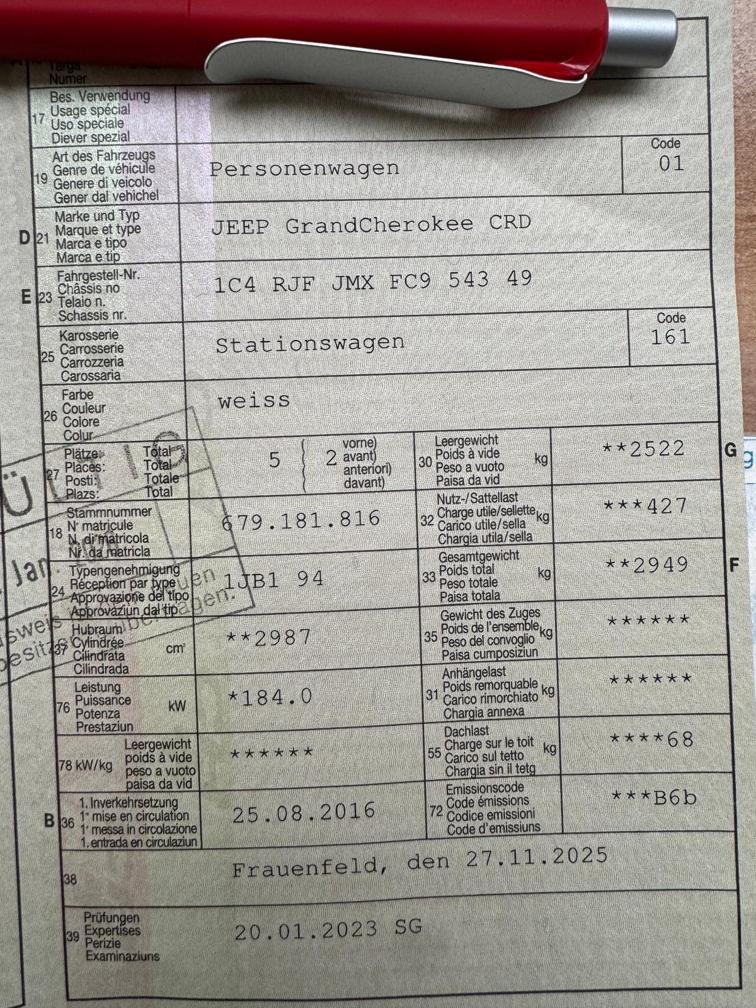 Targa
Numer
17 Bes. Verwendung
Usage spécial
Uso speciale
Diever spezial
19 Art des Fahrzeugs
Genre de véhicule
Genere di veicolo
Gener dal vehichel
Personenwagen
Code
01
D 21 Marke und Typ
Marque et type
Marca e tipo
Marca e tip
JEEP GrandCherokee CRD
E 23 Fahrgestell-Nr.
Châssis no
Telaio n.
Schassis nr.
1C4 RJF JMX FC9 543 49
25 Karosserie
Carrosserie
Carrozzeria
Carossaria
Stationswagen
Code
161
26 Farbe
Couleur
Colore
Colur
weiss
27 Plätze: Total
Places: Total
Posti: Totale
Plazs: Total
5 ( 2 vorne)
avant)
anteriori)
davant)
30 Leergewicht
Poids à vide
Peso a vuoto
Paisa da vid
kg
**2522
G
18 Stammnummer
N° matricule
N. di matricola
Nr. da matricla
679.181.816
32 Nutz-/Sattellast
Charge utile/sellette
Carico utile/sella
Chargia utila/sella
kg
***427
24 Typengenehmigung
Réception par type
Approvazione del tipo
Approvaziun dal tip
1JB1 94
33 Gesamtgewicht
Poids total
Peso totale
Paisa totala
kg
**2949
F
37 Hubraum
Cylindrée
Cilindrata
Cilindrada
cm³
**2987
35 Gewicht des Zuges
Poids de l'ensemble
Peso del convoglio
Paisa cumposiziun
kg
******
76 Leistung
Puissance
Potenza
Prestaziun
kW
*184.0
31 Anhängelast
Poids remorquable
Carico rimorchiato
Chargia annexa
kg
******
78 kW/kg Leergewicht
poids à vide
peso a vuoto
paisa da vid
******
55 Dachlast
Charge sur le toit
Carico sul tetto
Chargia sin il tetg
kg
****68
B 36 1. Inverkehrsetzung
1re mise en circulation
1a messa in circolazione
1. entrada en circulaziun
25.08.2016
72 Emissionscode
Code émissions
Codice emissioni
Code d'emissiuns
***B6b
38
Frauenfeld, den 27.11.2025
39 Prüfungen
Expertises
Perizie
Examinaziuns
20.01.2023 SG
Jan